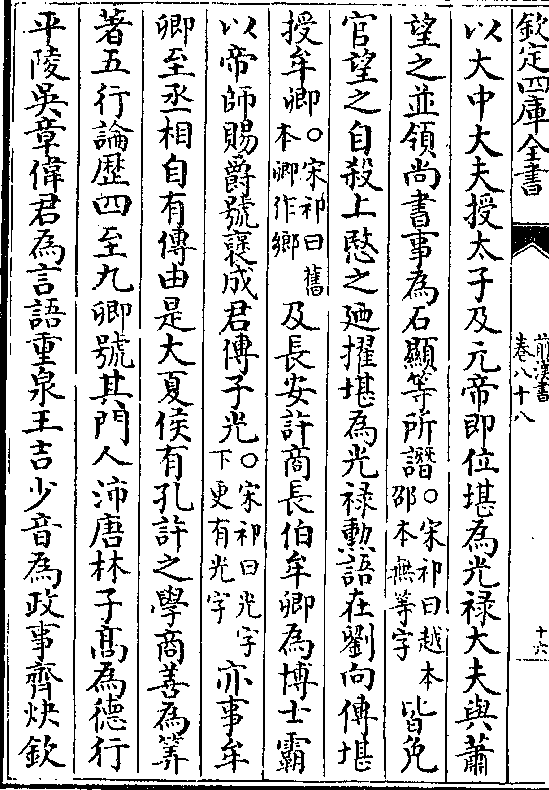 欽定四庫全書
前漢書
卷八十八
十六
以大中大夫授太子及元帝即位堪為光禄大夫與蕭
望之並領尚書事為石顯等所譖○宋祁曰越本邵本無等字皆免
官望之自殺上愍之廼擢堪為光禄勲語在劉向傳堪
授牟卿○宋祁曰舊本卿作鄉及長安許商長伯牟卿為博士霸
以帝師賜爵號襃成君傳子光○宋祁曰光字下更有光字亦事牟
卿至丞相自有傳由是大夏侯有孔許之學商善為筭
著五行論歴四至九卿號其門人沛唐林子髙為德行
平陵吳章偉君為言語重泉王吉少音為政事齊炔欽